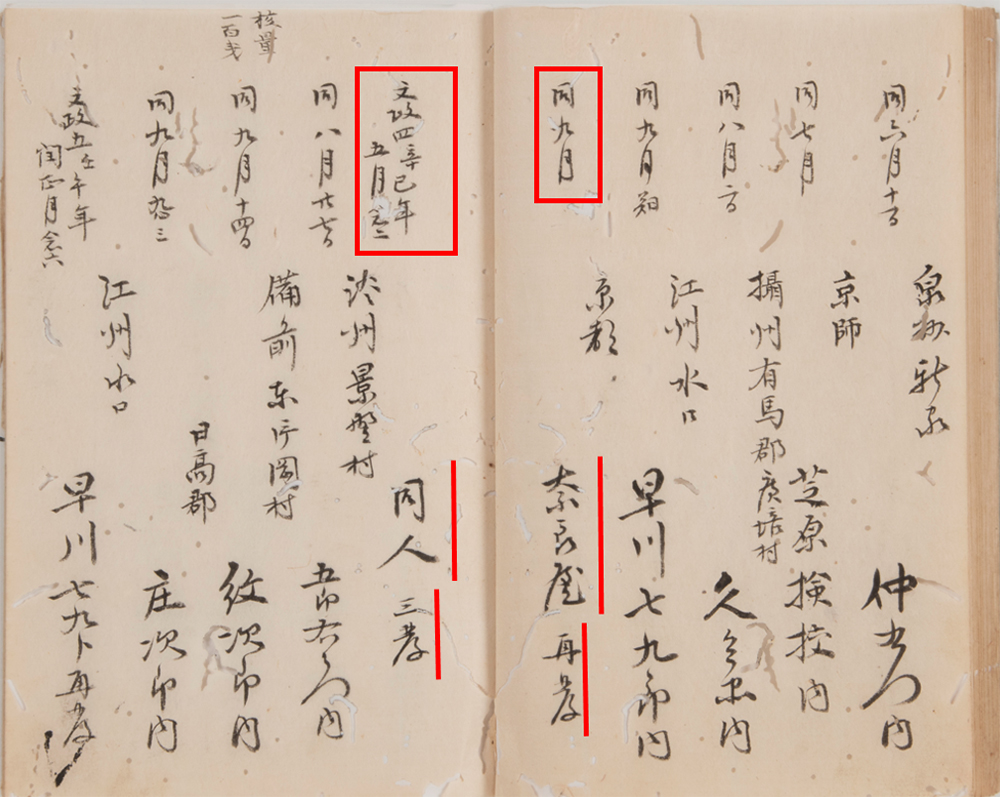 同六月十一日
泉州新家
仲右衛門内
同七月
京師
芝原検校内
同八月二日
攝州有馬郡村
久兵衛内
同九月初
江州水口
早川七九郎内
同九月
京都
奈良屋 再發
文政四辛巳年
五月念二
同人 三發
同八月廿七日
淡州景野村
五郎右衛門内
核量
一百弐
同九月十四日
備前東片岡村
紋次郎内
同九月念三
日高郡
庄次郎内
文政五壬午年
閏正月念六
江州水口
早川七九 再發